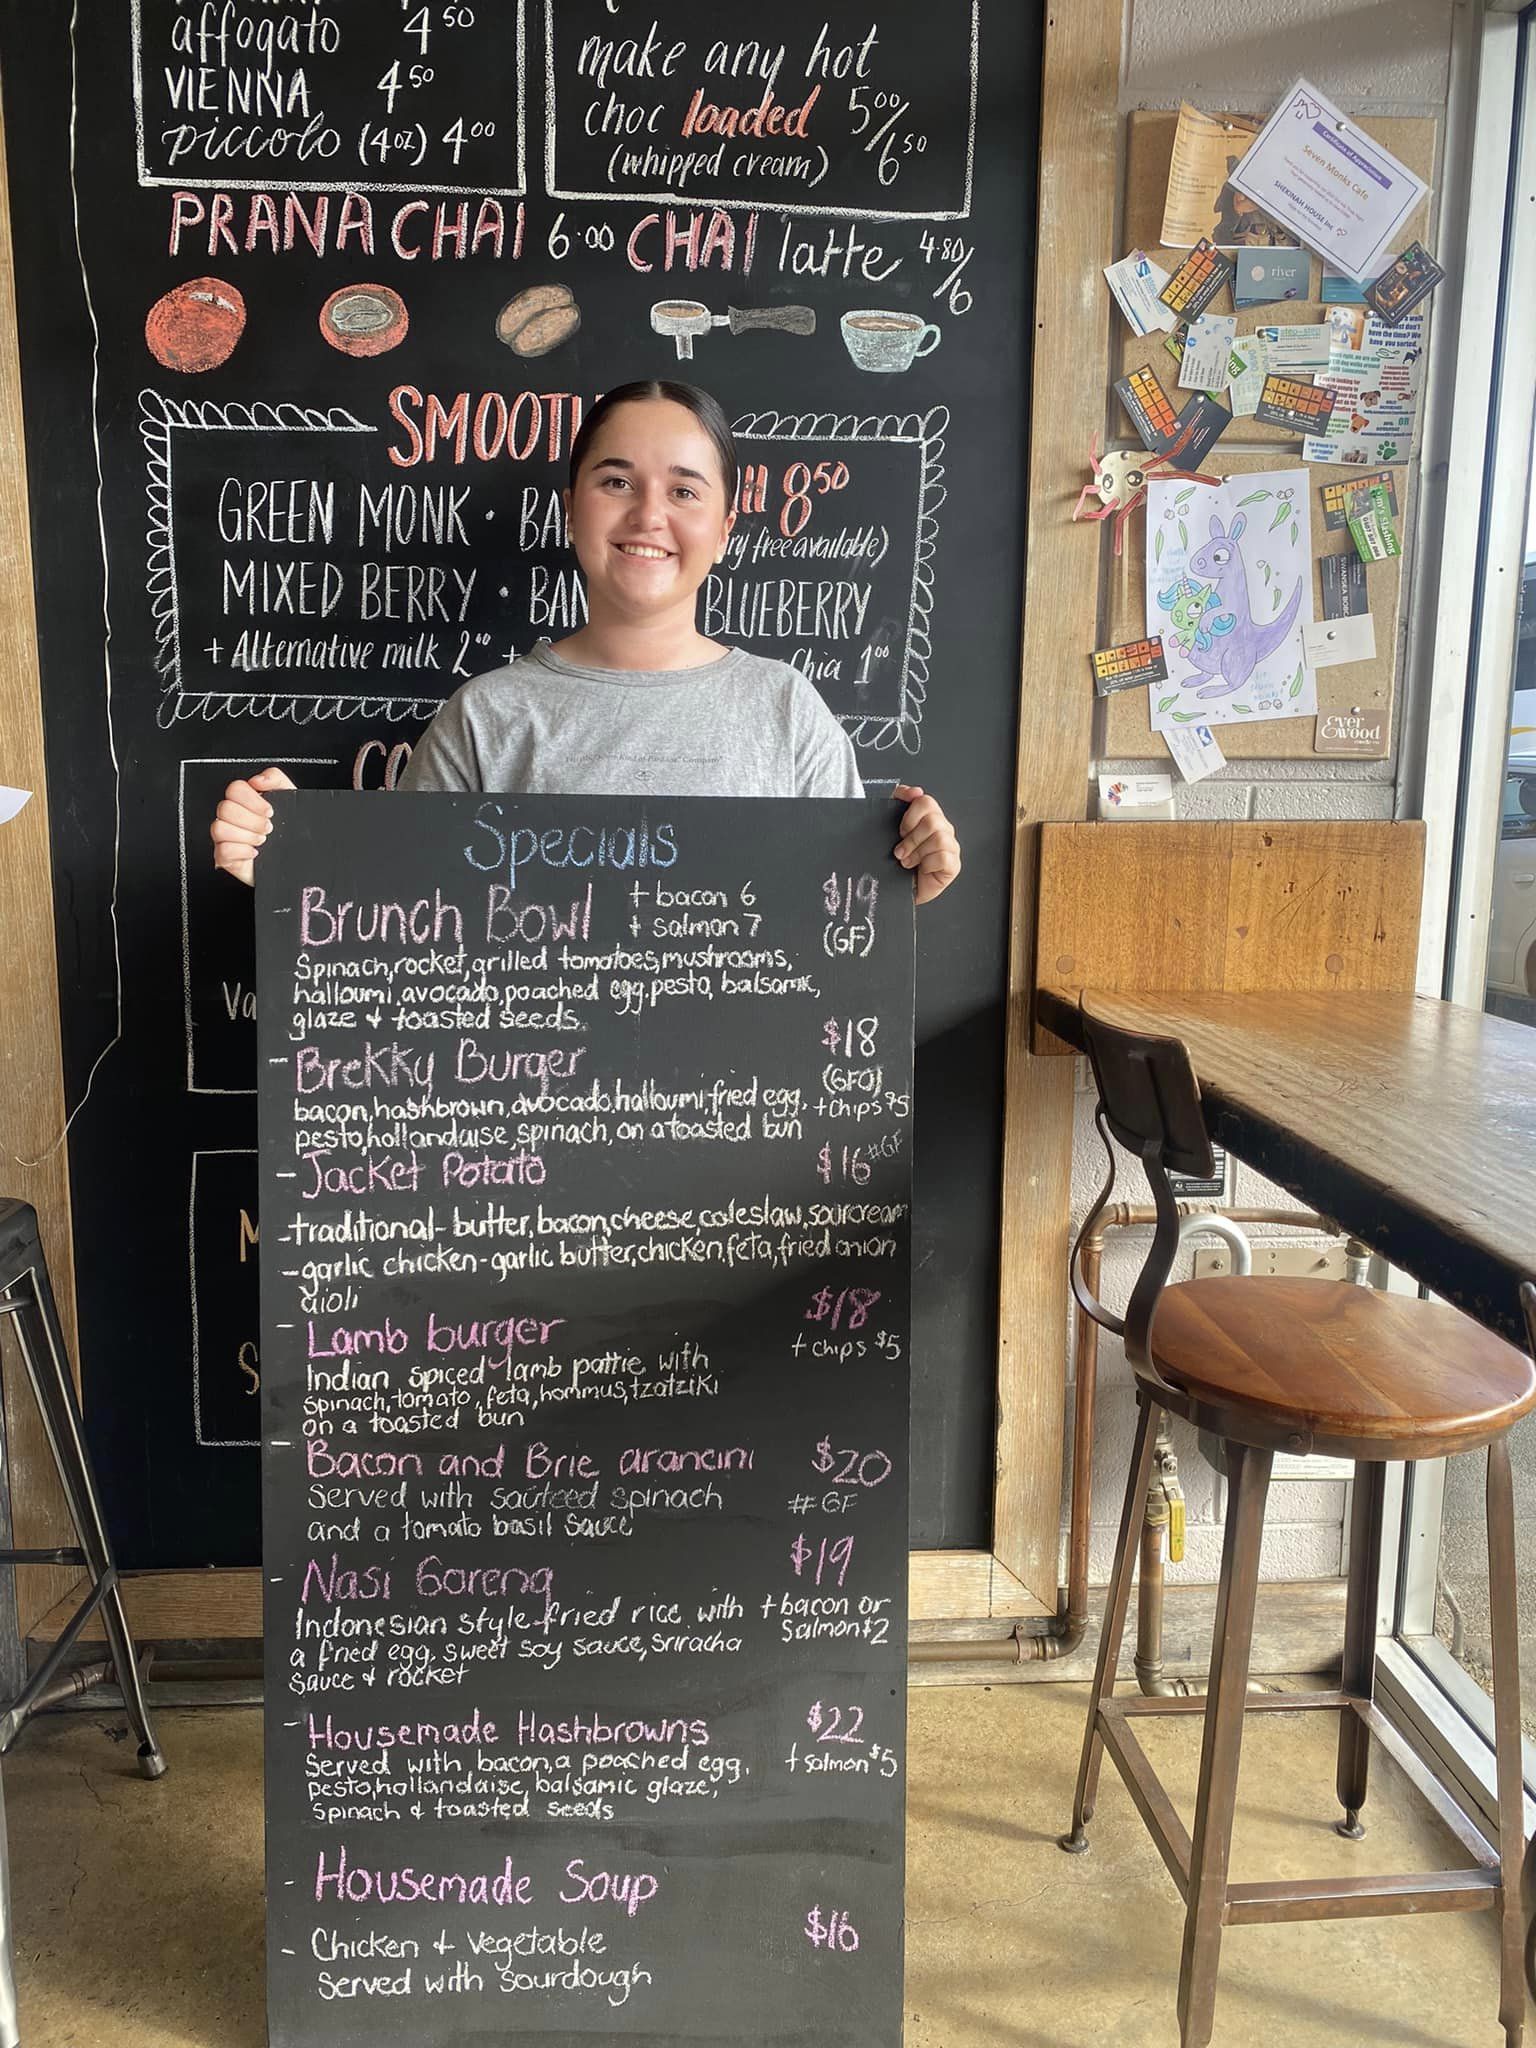 affogato 4 50
VIENNA 4 50
piccolo (4oz) 4 00
make any hot
choc loaded 5 00/
(whipped cream) 6 50
PRANA CHAI 6.00 CHAI latte 4.80/
6
8 50
GREEN MONK •
free available)
MIXED BERRY • BLUEBERRY
+ Alternative milk 2 00 + Chia 1 00
Specials
- Brunch Bowl + bacon 6 $19
+ salmon 7 (GF)
Spinach, rocket, grilled tomatoes, mushrooms,
halloumi, avocado, poached egg, pesto, balsamic,
glaze + toasted seeds.
- Brekky Burger $18
(GFO)
bacon, hashbrown, avocado, halloumi, fried egg, + chips $5
pesto, hollandaise, spinach, on a toasted bun
- Jacket Potato $16 #GF
- traditional - butter, bacon, cheese, coleslaw, sourcream
- garlic chicken - garlic butter, chicken, feta, fried onion
aioli
- Lamb burger $18
+ chips $5
Indian spiced lamb pattie with
spinach, tomato, feta, hommus, tzatziki
on a toasted bun
- Bacon and Brie arancini $20
Served with sauteed spinach #GF
and a tomato basil sauce
- Nasi Goreng $19
Indonesian style fried rice with + bacon or
a fried egg, sweet soy sauce, sriracha salmon $2
sauce + rocket
- Housemade Hashbrowns $22
Served with bacon, a poached egg, + salmon $5
pesto, hollandaise, balsamic glaze,
spinach & toasted seeds
- Housemade Soup
$16
- Chicken + vegetable
served with sourdough
Certificate of Appreciation
Seven Monks Cafe
SHEKINAH HOUSE Inc
river
step by step
Ever
&
wood